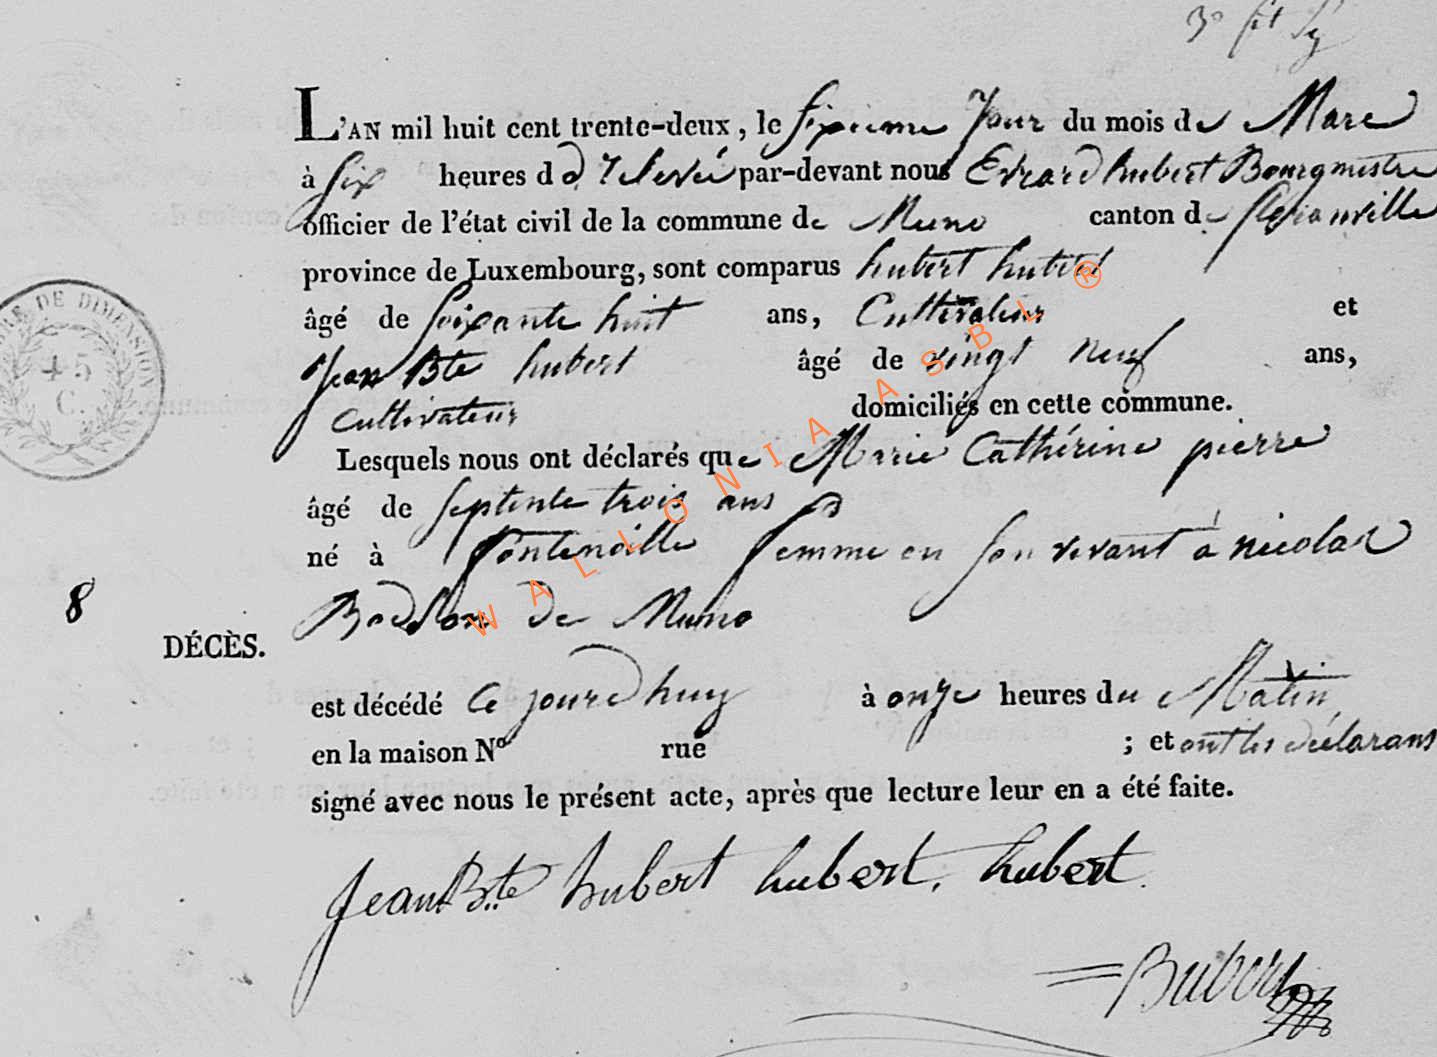 3e fet
L'AN mil huit cent trente-deux, le sixieme Jour du mois de Mars
à six heures de relevée par-devant nous Evrard hubert Bourgmestre
officier de l'état civil de la commune de Muno canton de florenville
province de Luxembourg, sont comparus hubert hubert
âgé de soixante huit ans, Cultivateur et
Jean Bte hubert âgé de vingt neuf ans,
cultivateur domiciliés en cette commune.
Lesquels nous ont déclarés que Marie Cathérine pierre
âgé de septente trois ans
né à fontenoille femme en son vivant à nicolas
8
Bodson de Muno
DÉCÈS.
est décédé Ce jourd huy à onze heures du Matin
en la maison No rue ; et ont les déclarans
signé avec nous le présent acte, après que lecture leur en a été faite.
Jean Bte hubert hubert, hubert
TIMBRE DE DIMENSION
45
C.
WALLONIA ASBL ®